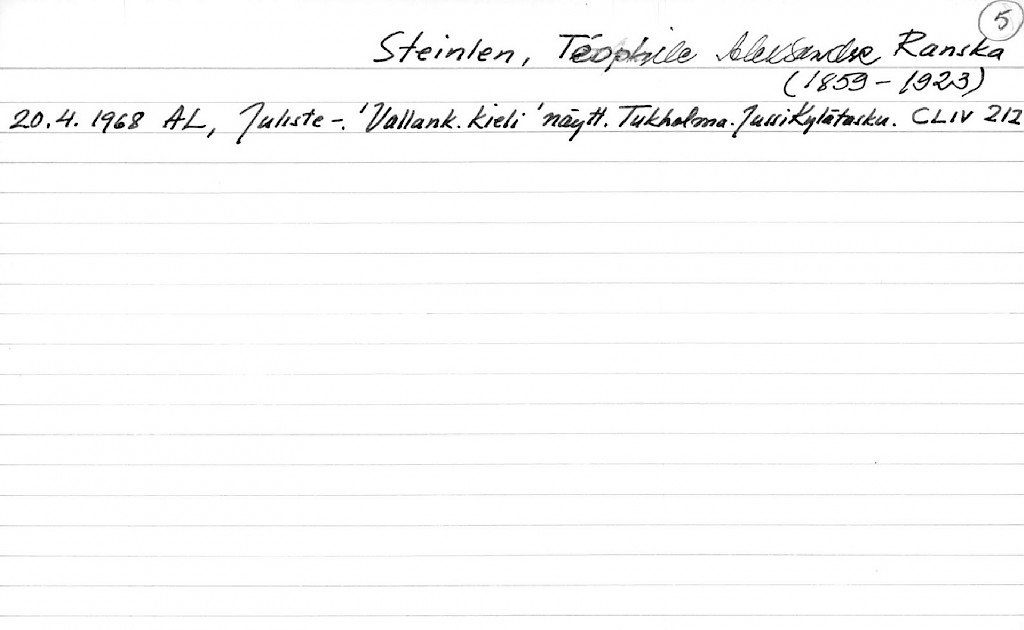 5
Steinlen, Téophile Aleksandre Ranska
(1859-1923)
20.4. 1968 AL, Juliste -. 'Vallank. kieli' näytt. Tukholma. Jussi Kylätasku. CLIV 212